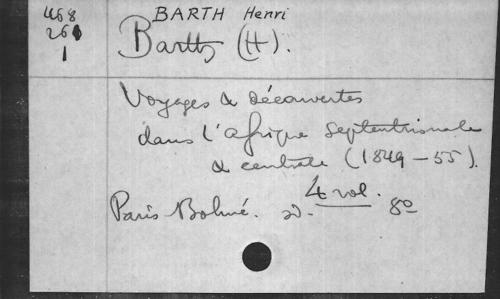 468 BARTH Henri
261
1 Barth (H).
Voyages & découvertes
dans l'Afrique septentrionale
& centrale (1849-55).
4 vol.
Paris Bohné. 8º